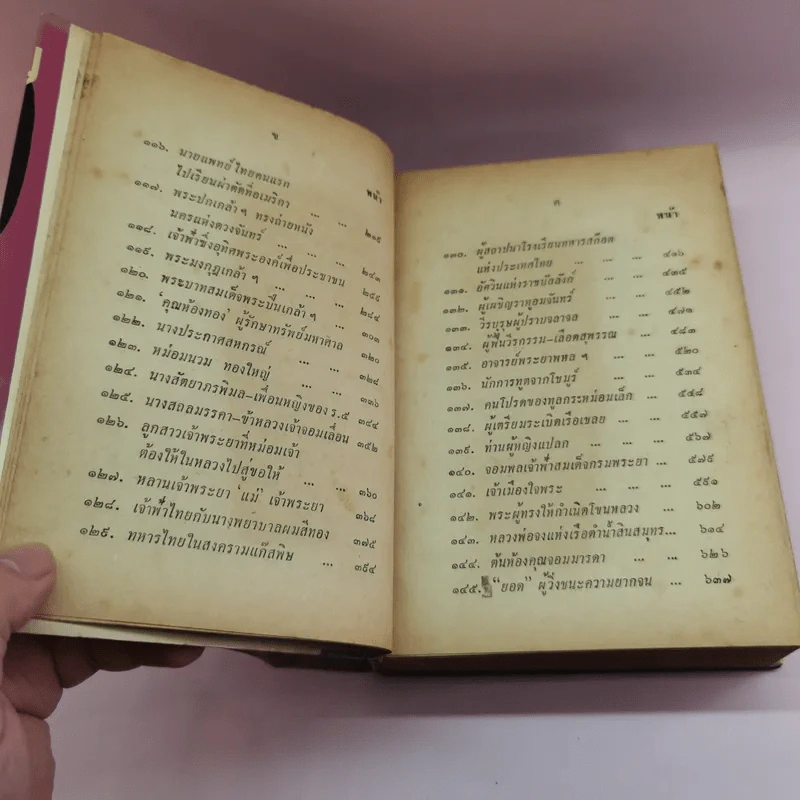 ข
หน้า
๑๑๖. นายแพทย์ไทยคนแรก
ไปเรียนผ่าตัดที่อเมริกา ... ... ๒๑๙
๑๑๗. พระปกเกล้า ฯ ทรงถ่ายหนัง
นครแห่งดวงจันทร์ ... ... ... ๒๔๑
๑๑๘. เจ้าฟ้าซึ่งอุทิศพระองค์เพื่อประชาชน ๒๕๙
๑๑๙. พระมงกุฎเกล้า ฯ ... ... ... ๒๘๔
๑๒๐. พระบาทสมเด็จพระปิ่นเกล้า ฯ ... ๓๐๑
๑๒๑. ‘คุณห้องทอง’ ผู้รักษาทรัพย์มหาศาล ๓๒๐
๑๒๒. นางประกาศสหกรณ์ ... ... ๓๒๘
๑๒๓. หม่อมนวม ทองใหญ่ ... ... ๓๓๖
๑๒๔. นางสัตยาภรพิมล-เพื่อนหญิงของ ร.๕ ๓๔๔
๑๒๕. นางสถลมารรคา-ข้าหลวงเจ้าจอมเลื่อน ๓๕๒
๑๒๖. ลูกสาวเจ้าพระยาที่หม่อมเจ้า
ต้องให้ในหลวงไปสู่ขอให้ ... ... ๓๖๐
๑๒๗. หลานเจ้าพระยา ‘แม่’ เจ้าพระยา ๓๖๘
๑๒๘. เจ้าฟ้าไทยกับนางพยาบาลผมสีทอง ๓๗๕
๑๒๙. ทหารไทยในสงครามแก๊สพิษ ... ๓๙๔
ค
หน้า
๑๓๐. ผู้สถาปนาโรงเรียนทหารสก๊อต
แห่งประเทศไทย ... ... ... ๔๑๖
๑๓๑. อัศวินแห่งราชบัลลังก์ ... ... ๔๓๕
๑๓๒. ผู้เผชิญราหูอมจันทร์ ... ... ๔๕๒
๑๓๓. วีรบุรุษผู้ปราบจลาจล ... ... ๔๗๑
๑๓๔. ผู้ฟื้นวีรกรรม-เลือดสุพรรณ ... ๔๘๑
๑๓๕. อาจารย์พระยาพหล ฯ ... ... ๕๒๐
๑๓๖. นักการทูตจากไชบูร์ ... ... ๕๓๔
๑๓๗. คนโปรดของทูลกระหม่อมเล็ก ... ๕๔๘
๑๓๘. ผู้เตรียมระเบิดเรือเชลย ... ... ๕๕๗
๑๓๙. ท่านผู้หญิงแปลก ... ... ๕๖๗
๑๔๐. จอมพลเจ้าฟ้าสมเด็จกรมพระยา ... ๕๗๙
๑๔๑. เจ้าเมืองใจพระ ... ... ๕๙๑
๑๔๒. พระผู้ทรงให้กำเนิดโขนหลวง ... ๖๐๒
๑๔๓. หลวงพ่อจงแห่งเรือดำน้ำสินสมุทร... ๖๑๔
๑๔๔. ต้นห้องคุณจอมมารดา ... ... ๖๒๖
๑๔๕. “ยอด” ผู้วิ่งชนะความยากจน ... ๖๓๗